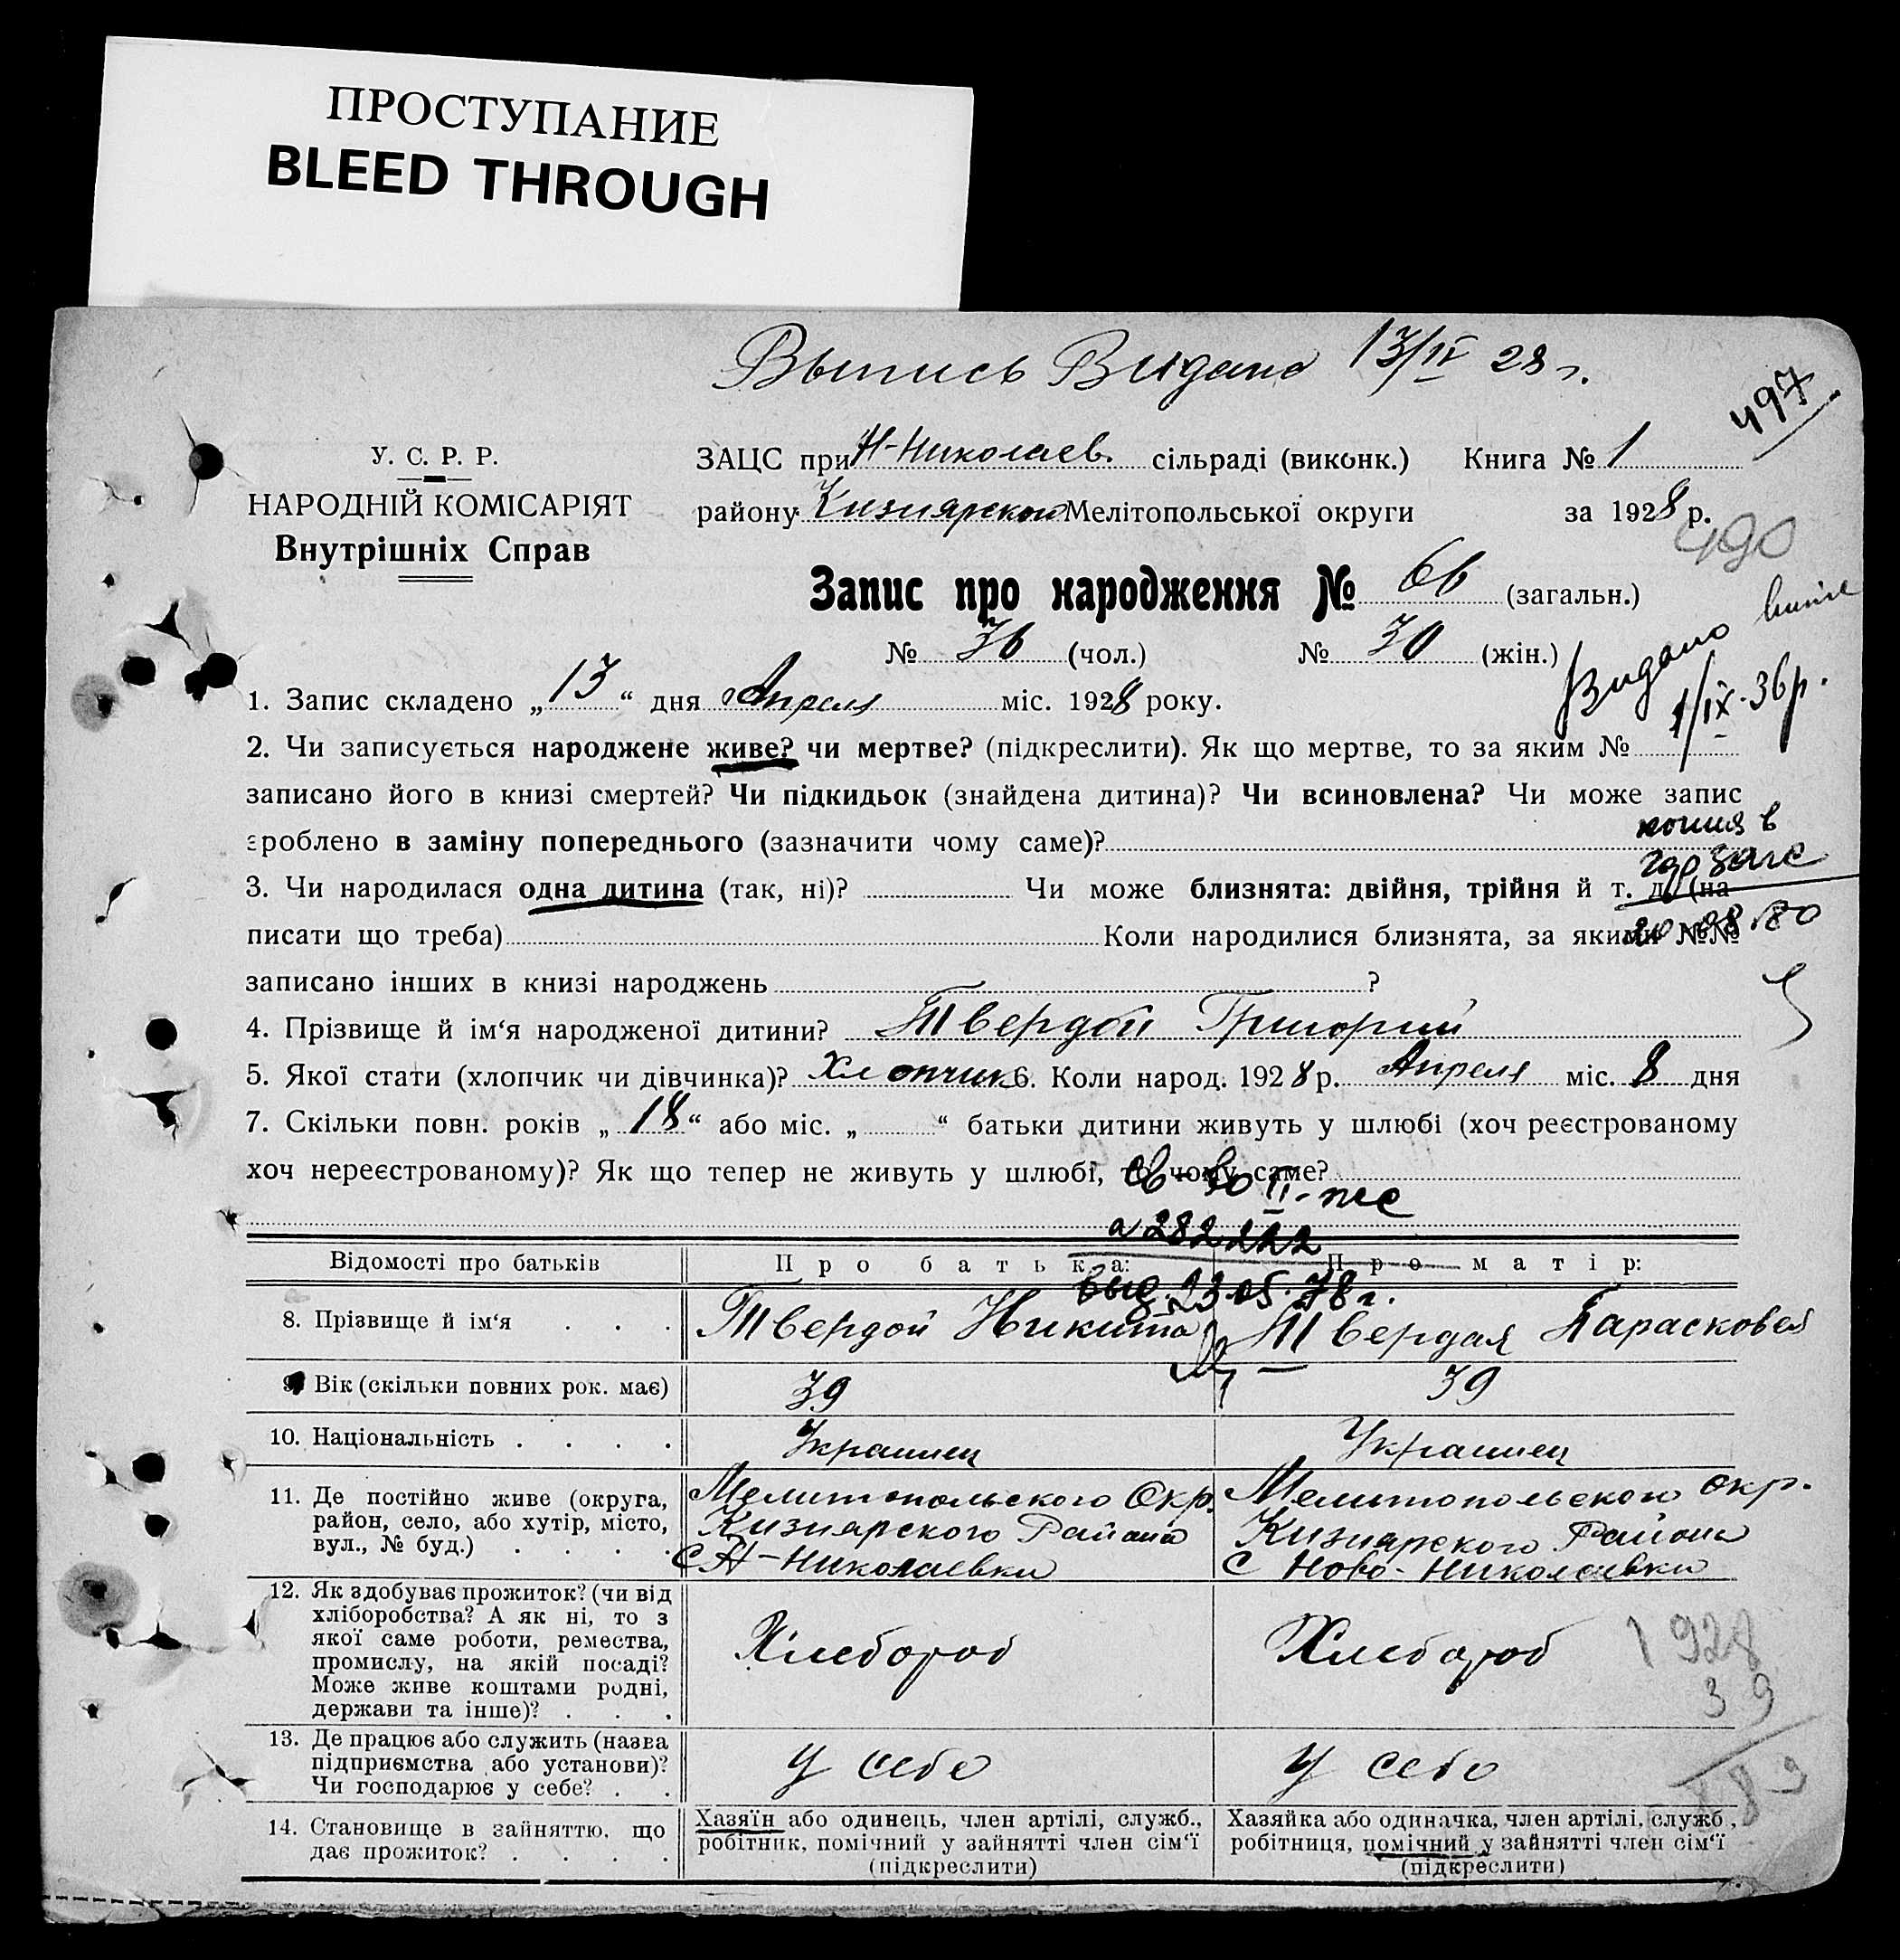 ПРОСТУПАНИЕ
BLEED THROUGH
Выпись Видана 13/IV 28 г.
497
У. С. Р. Р.
НАРОДНІЙ КОМІСАРІЯТ
Внутрішніх Справ
ЗАЦС при Н-Николаев. сільраді (виконк.) Книга № 1
району Кизиярском Мелітопольської округи за 1928 р.
490
Запис про народження № 66 (загальн.)
№ 36 (чол.) № 30 (жін.)
Видано
1/IX-36р.
1. Запис складено „13“ дня Апреля міс. 1928 року.
2. Чи записується народжене живе? чи мертве? (підкреслити). Як що мертве, то за яким №
записано його в книзі смертей? Чи підкидьок (знайдена дитина)? Чи всиновлена? Чи може запис
зроблено в заміну попереднього (зазначити чому саме)?
копия в
гор загс
3. Чи народилася одна дитина (так, ні)? Чи може близнята: двійня, трійня й т. д. (на
писати що треба) Коли народилися близнята, за якими №№
записано інших в книзі народжень ?
4. Прізвище й ім‘я народженої дитини? Твердой Григорий
5. Якої стати (хлопчик чи дівчинка)? Хлопчик 6. Коли народ. 1928 р. Апреля міс. 8 дня
7. Скільки повн. років „18“ або міс. „ “ батьки дитини живуть у шлюбі (хоч реєстрованому
хоч нереєстрованому)? Як що тепер не живуть у шлюбі, то чому саме?
св-во II-жс
282222
выд. 23.05.78 г.
Відомості про батьків Про батька: Про матір:
8. Прізвище й ім‘я Твердой Никита Твердая Парасковея
9. Вік (скільки повних рок. має) 39 39
10. Національність Украинец Украинец
11. Де постійно живе (округа,
район, село, або хутір, місто,
вул., № буд.)
Мелитопольского Окр.
Кизиярского Района
с Н-Николаевки
Мелитопольского окр.
Кизиярского Района
с Ново-Николаевки
12. Як здобуває прожиток? (чи від
хліборобства? А як ні, то з
якої саме роботи, ремества,
промислу, на якій посаді?
Може живе коштами родні,
держави та інше)?
Хлебороб Хлебороб
1928
39
889
13. Де працює або служить (назва
підприємства або установи)?
Чи господарює у себе?
У себе У себе
14. Становище в зайняттю, що
дає прожиток?
Хазяїн або одинець, член артілі, служб.,
робітник, помічний у зайнятті член сім‘ї
(підкреслити)
Хазяйка або одиначка, член артілі, служб.,
робітниця, помічний у зайнятті член сім‘ї
(підкреслити)